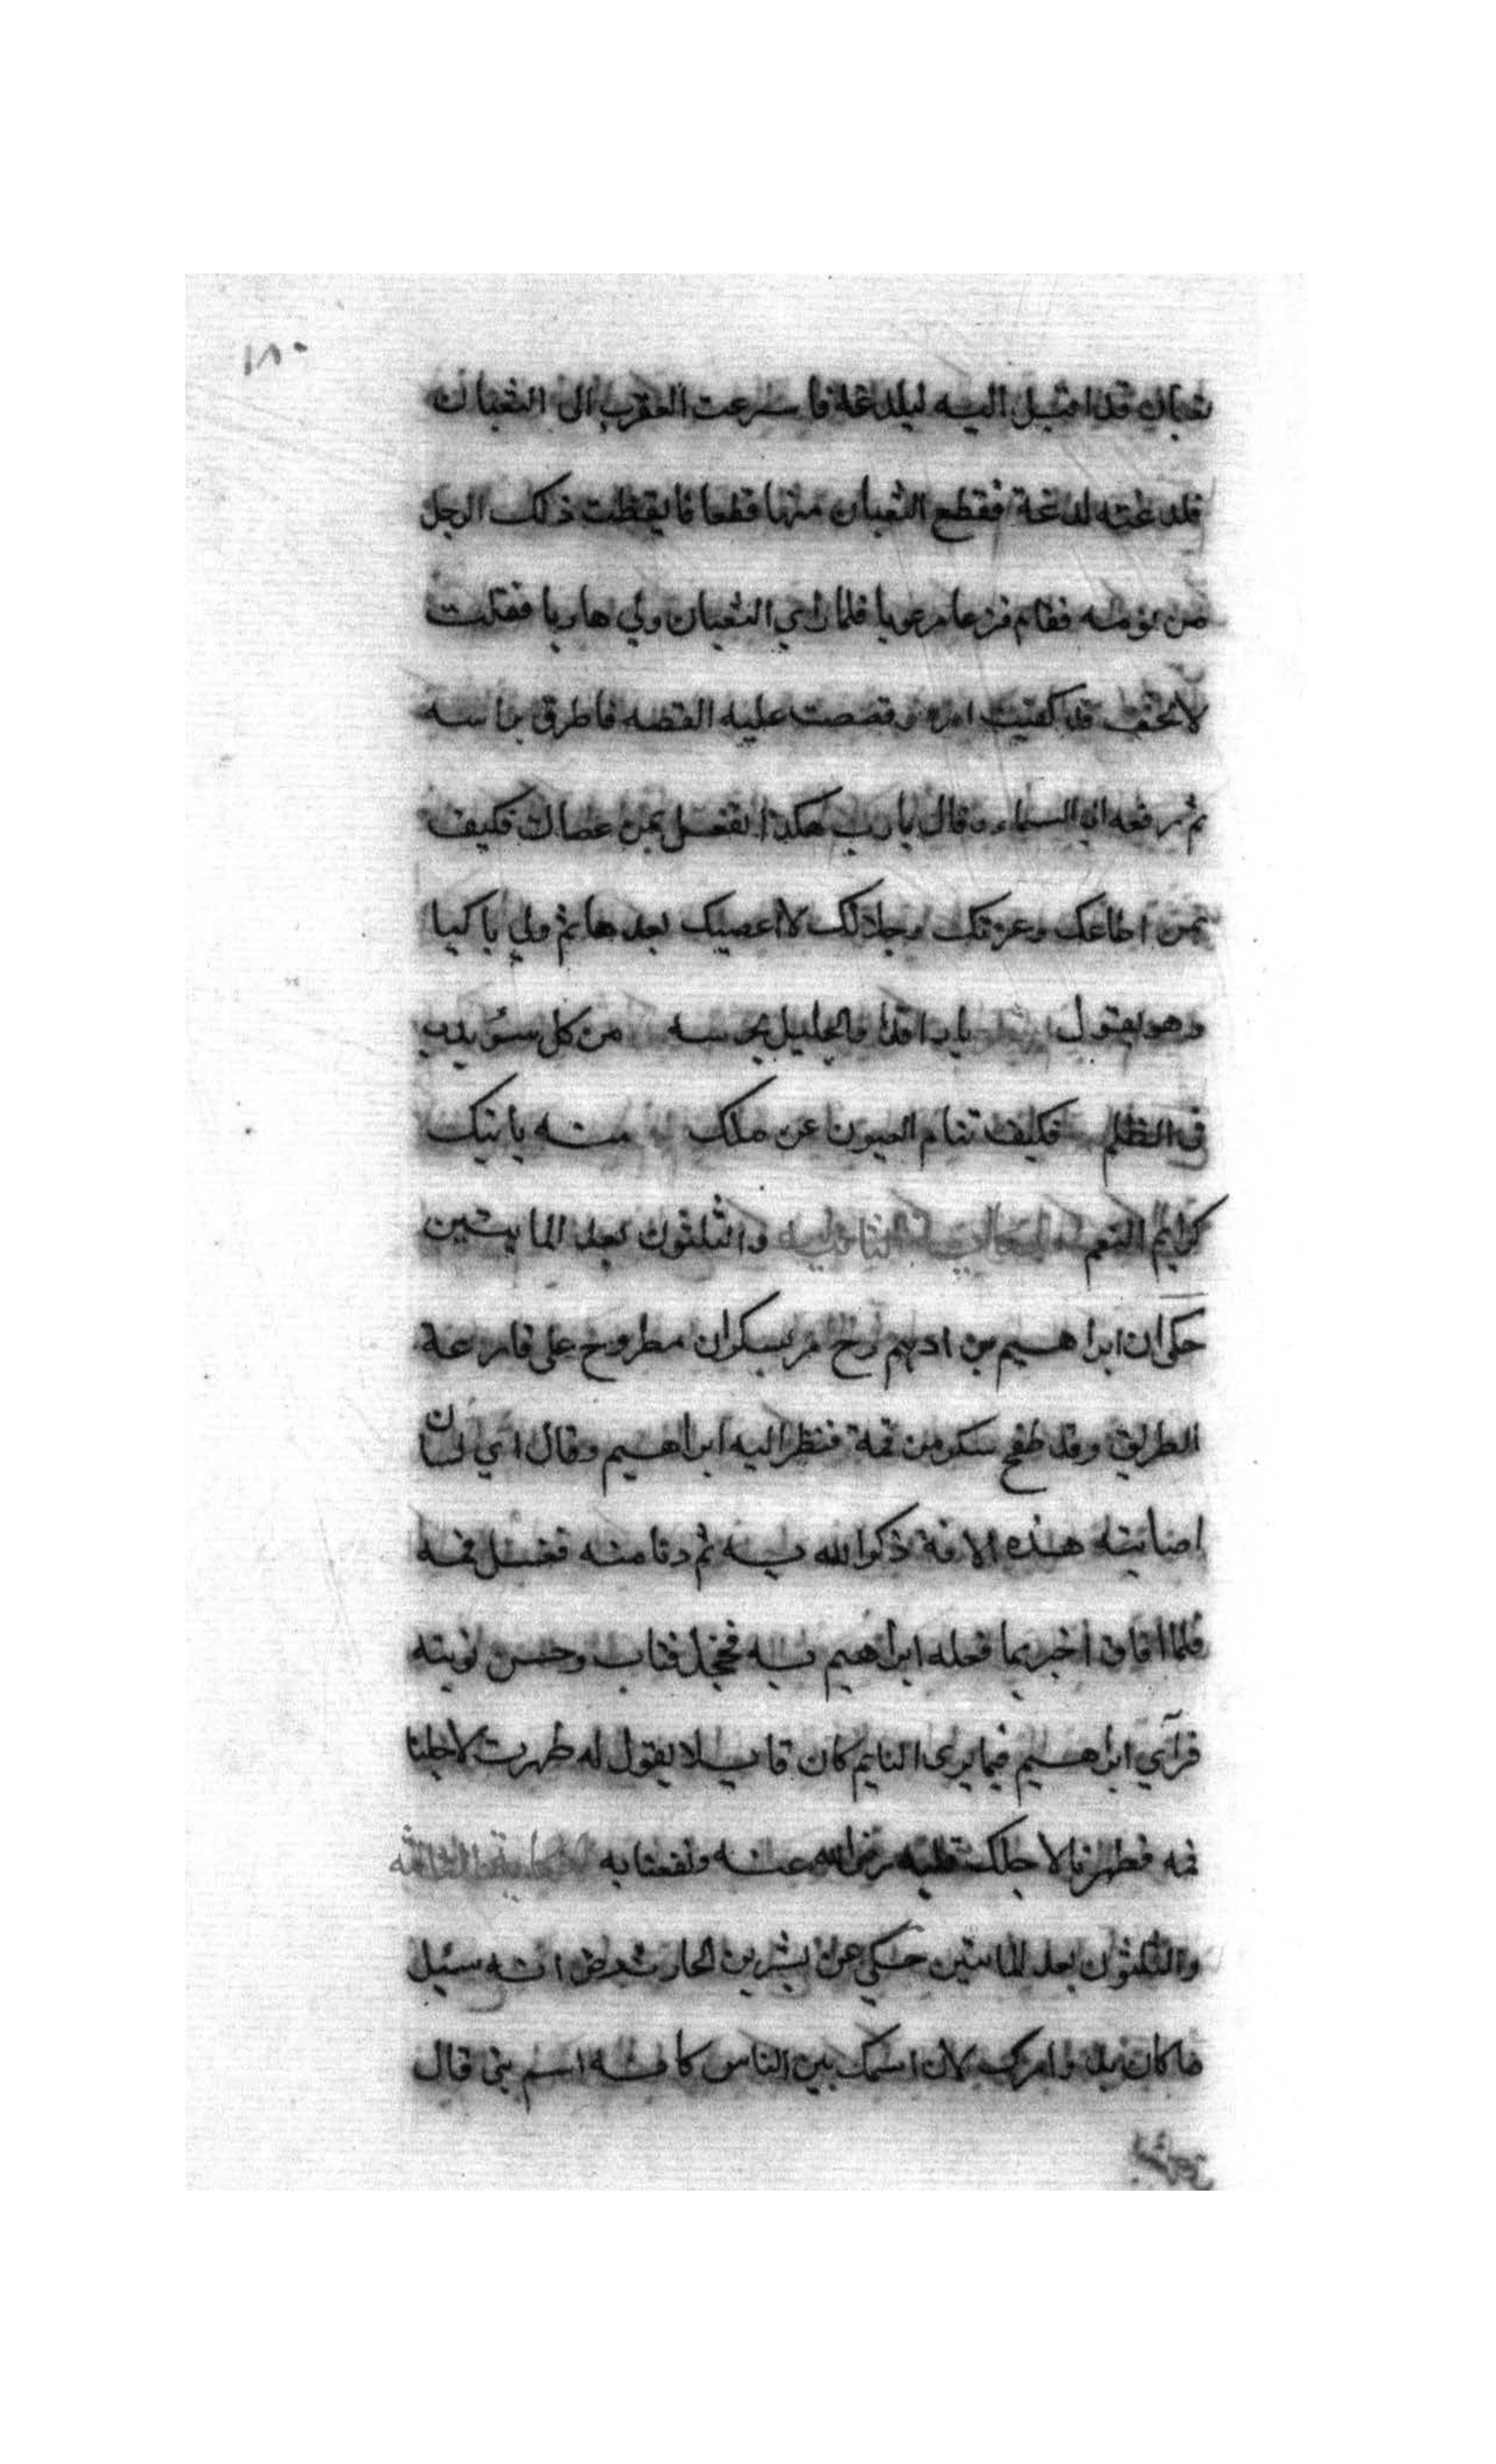 ١٨٠
ثعبان قد اقبل اليه ليلدغة فاسرعت العقرب الى الثعبان
فلدغته لدغة فقطع الثعبان منها قطعا فايقظت ذلك الرجل
من نومه فقام فزعا مرعوبا فلما راي الثعبان ولي هاربا فقلت
لا تخف قد كفيت امره وقصصت عليه القصه فاطرق براسه
ثم رفعه الي السماء وقال يا رب هكذا تفعل بمن عصاك فكيف
بمن اطاعك وعزتك وجلالك لا اعصيك بعدها ثم ولي باكيا
وهو يقول يا راقدا والجليل يحرسه من كل سوء يدب
في الظلم فكيف تنام العيون عن ملك منه ياتيك
كرايم النعم الحكاية الثانية والثلثون بعد المايتين
حكى ان ابراهيم بن ادهم رح مر بسكران مطروح على قارعة
الطريق وقد طفح سكره من فمة فنظر اليه ابراهيم وقال اي لسان
اصابته هذه الافة ذكر الله به ثم دنا منه فغسل فمه
فلما افاق اخبر بما فعله ابراهيم به فخجل فتاب وحسن توبته
فرآي ابراهيم فيما يرى النايم كان قايلا يقول له طهرت لاجلنا
فمه فطهرنا لاجلك قلبه رضى الله عنه ونفعنا به الحكاية الثالثة
والثلثون بعد المايتين حكي عن بشر بن الحارث رض انه سئيل
ما كان بدو امرك لان اسمك بين الناس كانه اسم نبى قال